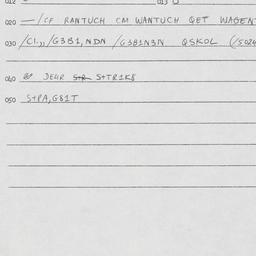 012
013
020 —/CF RANTUCH CM WANTUCH QET WAGEN
030 /G3B1,NDN /G3B1N3N QSKOL (/5024
040 DEUR S+R S+TR1K8
050 S+PA,G81T